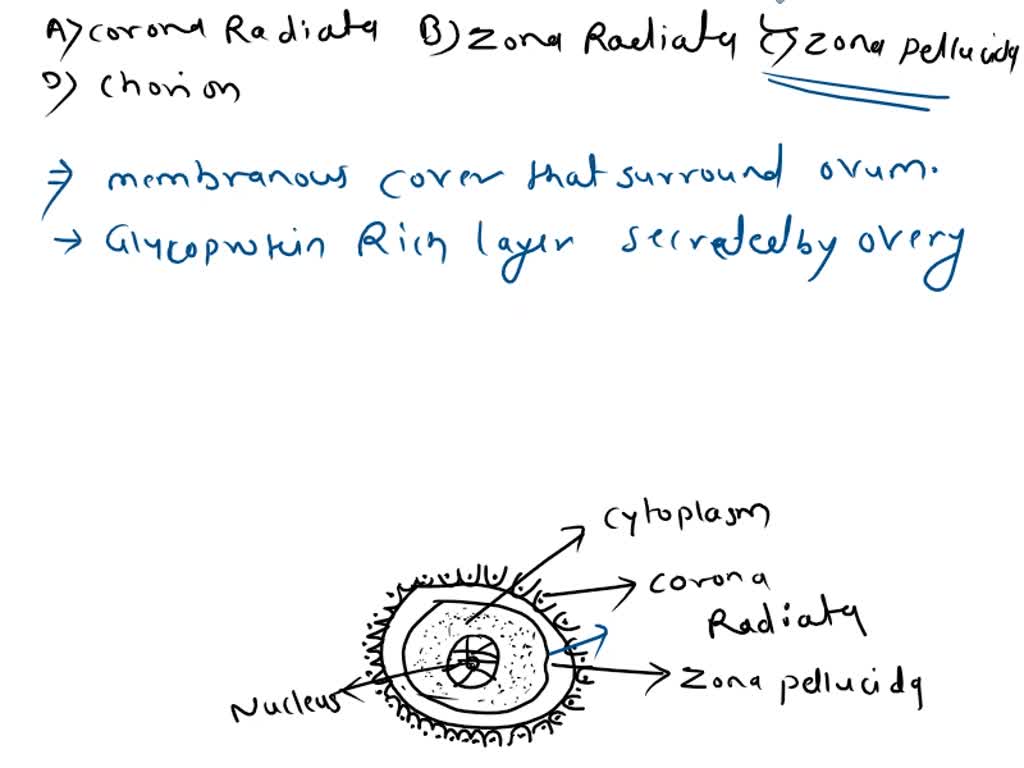 A) corona Radiata B) Zona Radiata C) Zona pellucida
D) Chorion
⇒ membranous cover that surround ovum.
→ Glycoprotein Rich layer secreted by overy
cytoplasm
corona
Radiata
Zona pellucida
Nucleus